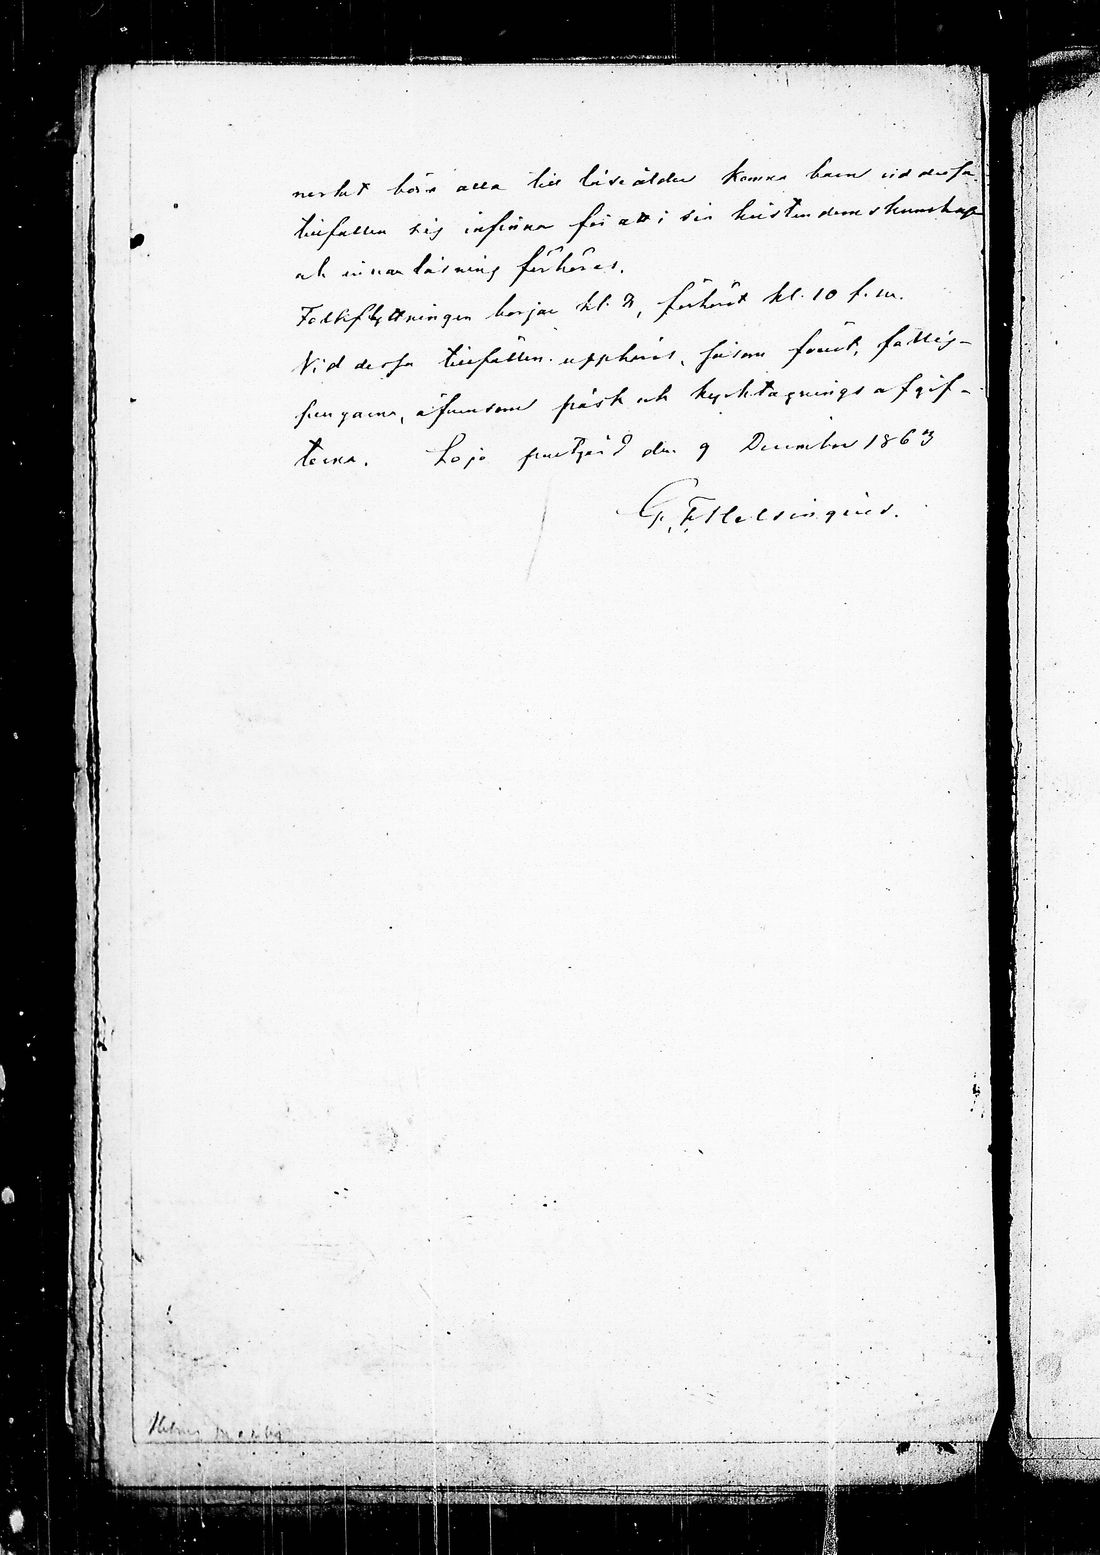 nerhet böra alla till läseålder komna barn vid dessa
tillfällen sig infinna för att i sin kristendomskunskap
och innanläsning förhöras.
Folkflyttningen börjar kl. 8, förhöret kl. 10 f.m.
Vid dessa tillfällen uppbäras, såsom förut, fattig-
pengarna, äfvensom påsk och kyrktagnings afgif-
terna. Lojo prestgård den 9 December 1863
G. F. Helsingius.